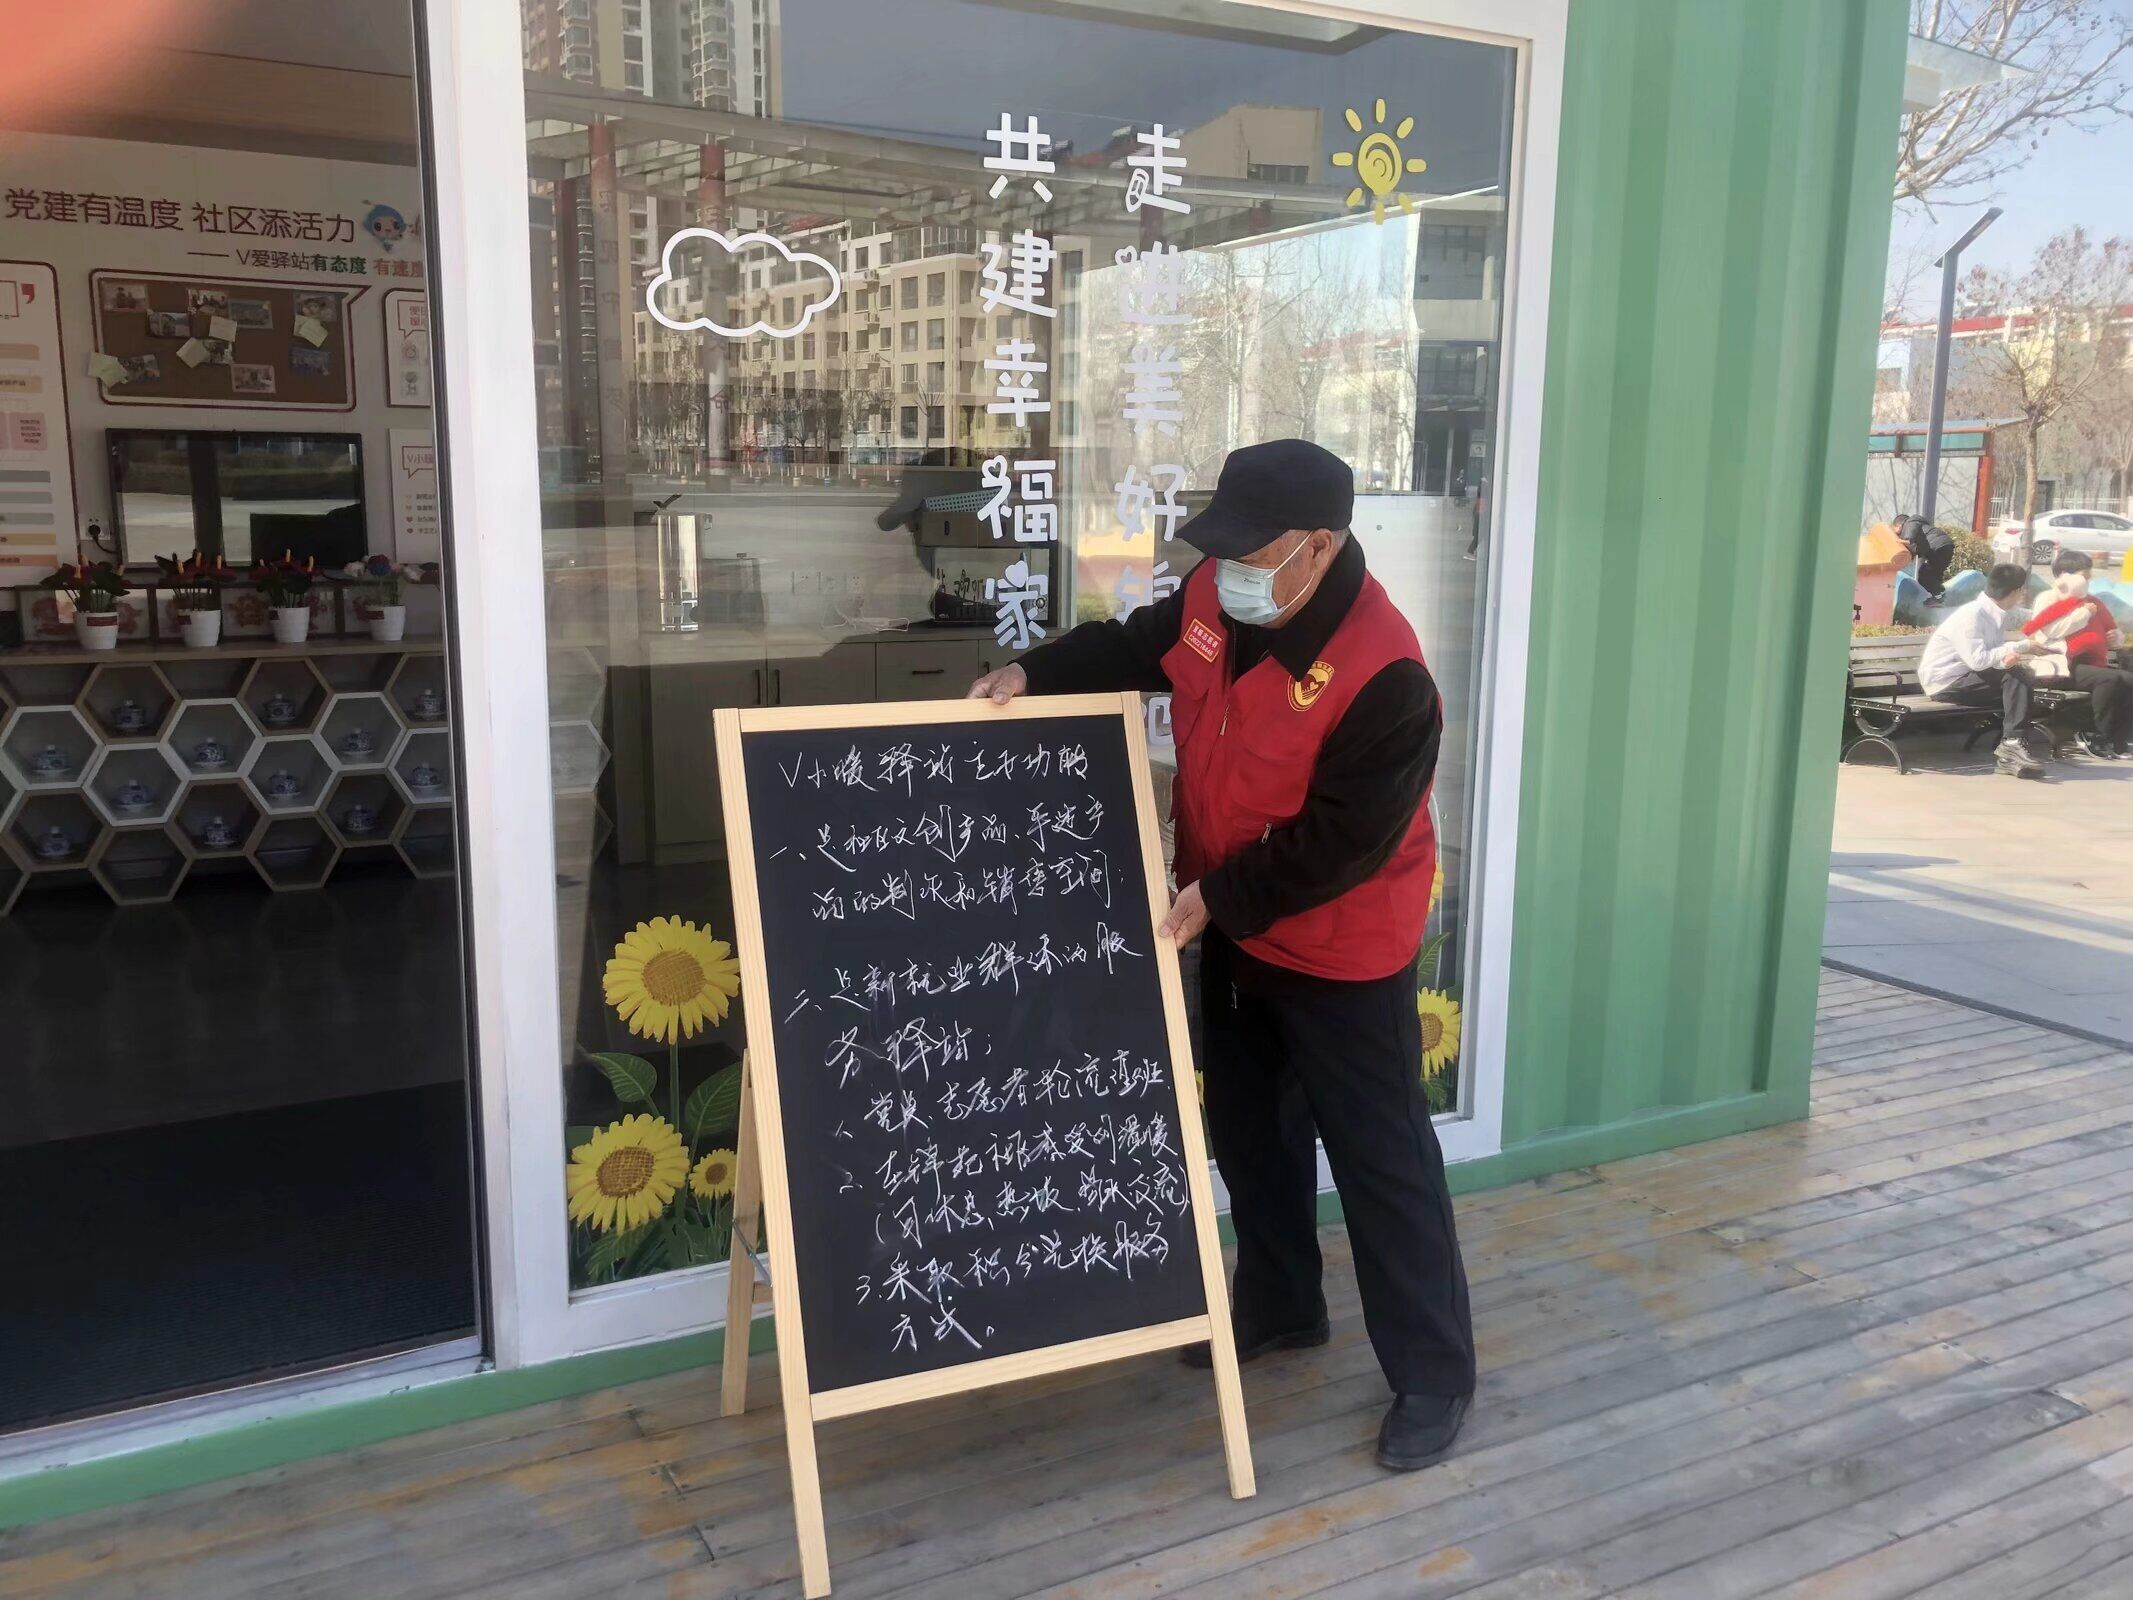 党建有温度 社区添活力
—— V爱驿站有态度 有速度
共建幸福家
走进美好
V小暖驿站主要功能
一、是社区文创产品、手造产
品的制作和销售空间；
二、是新就业群体的服
务驿站；
1、党员、志愿者轮流值班.
2、在锦苑社区感受到温暖
(可休息、热饭、 交流)
3.采取积分兑换服务
方式。
V小暖